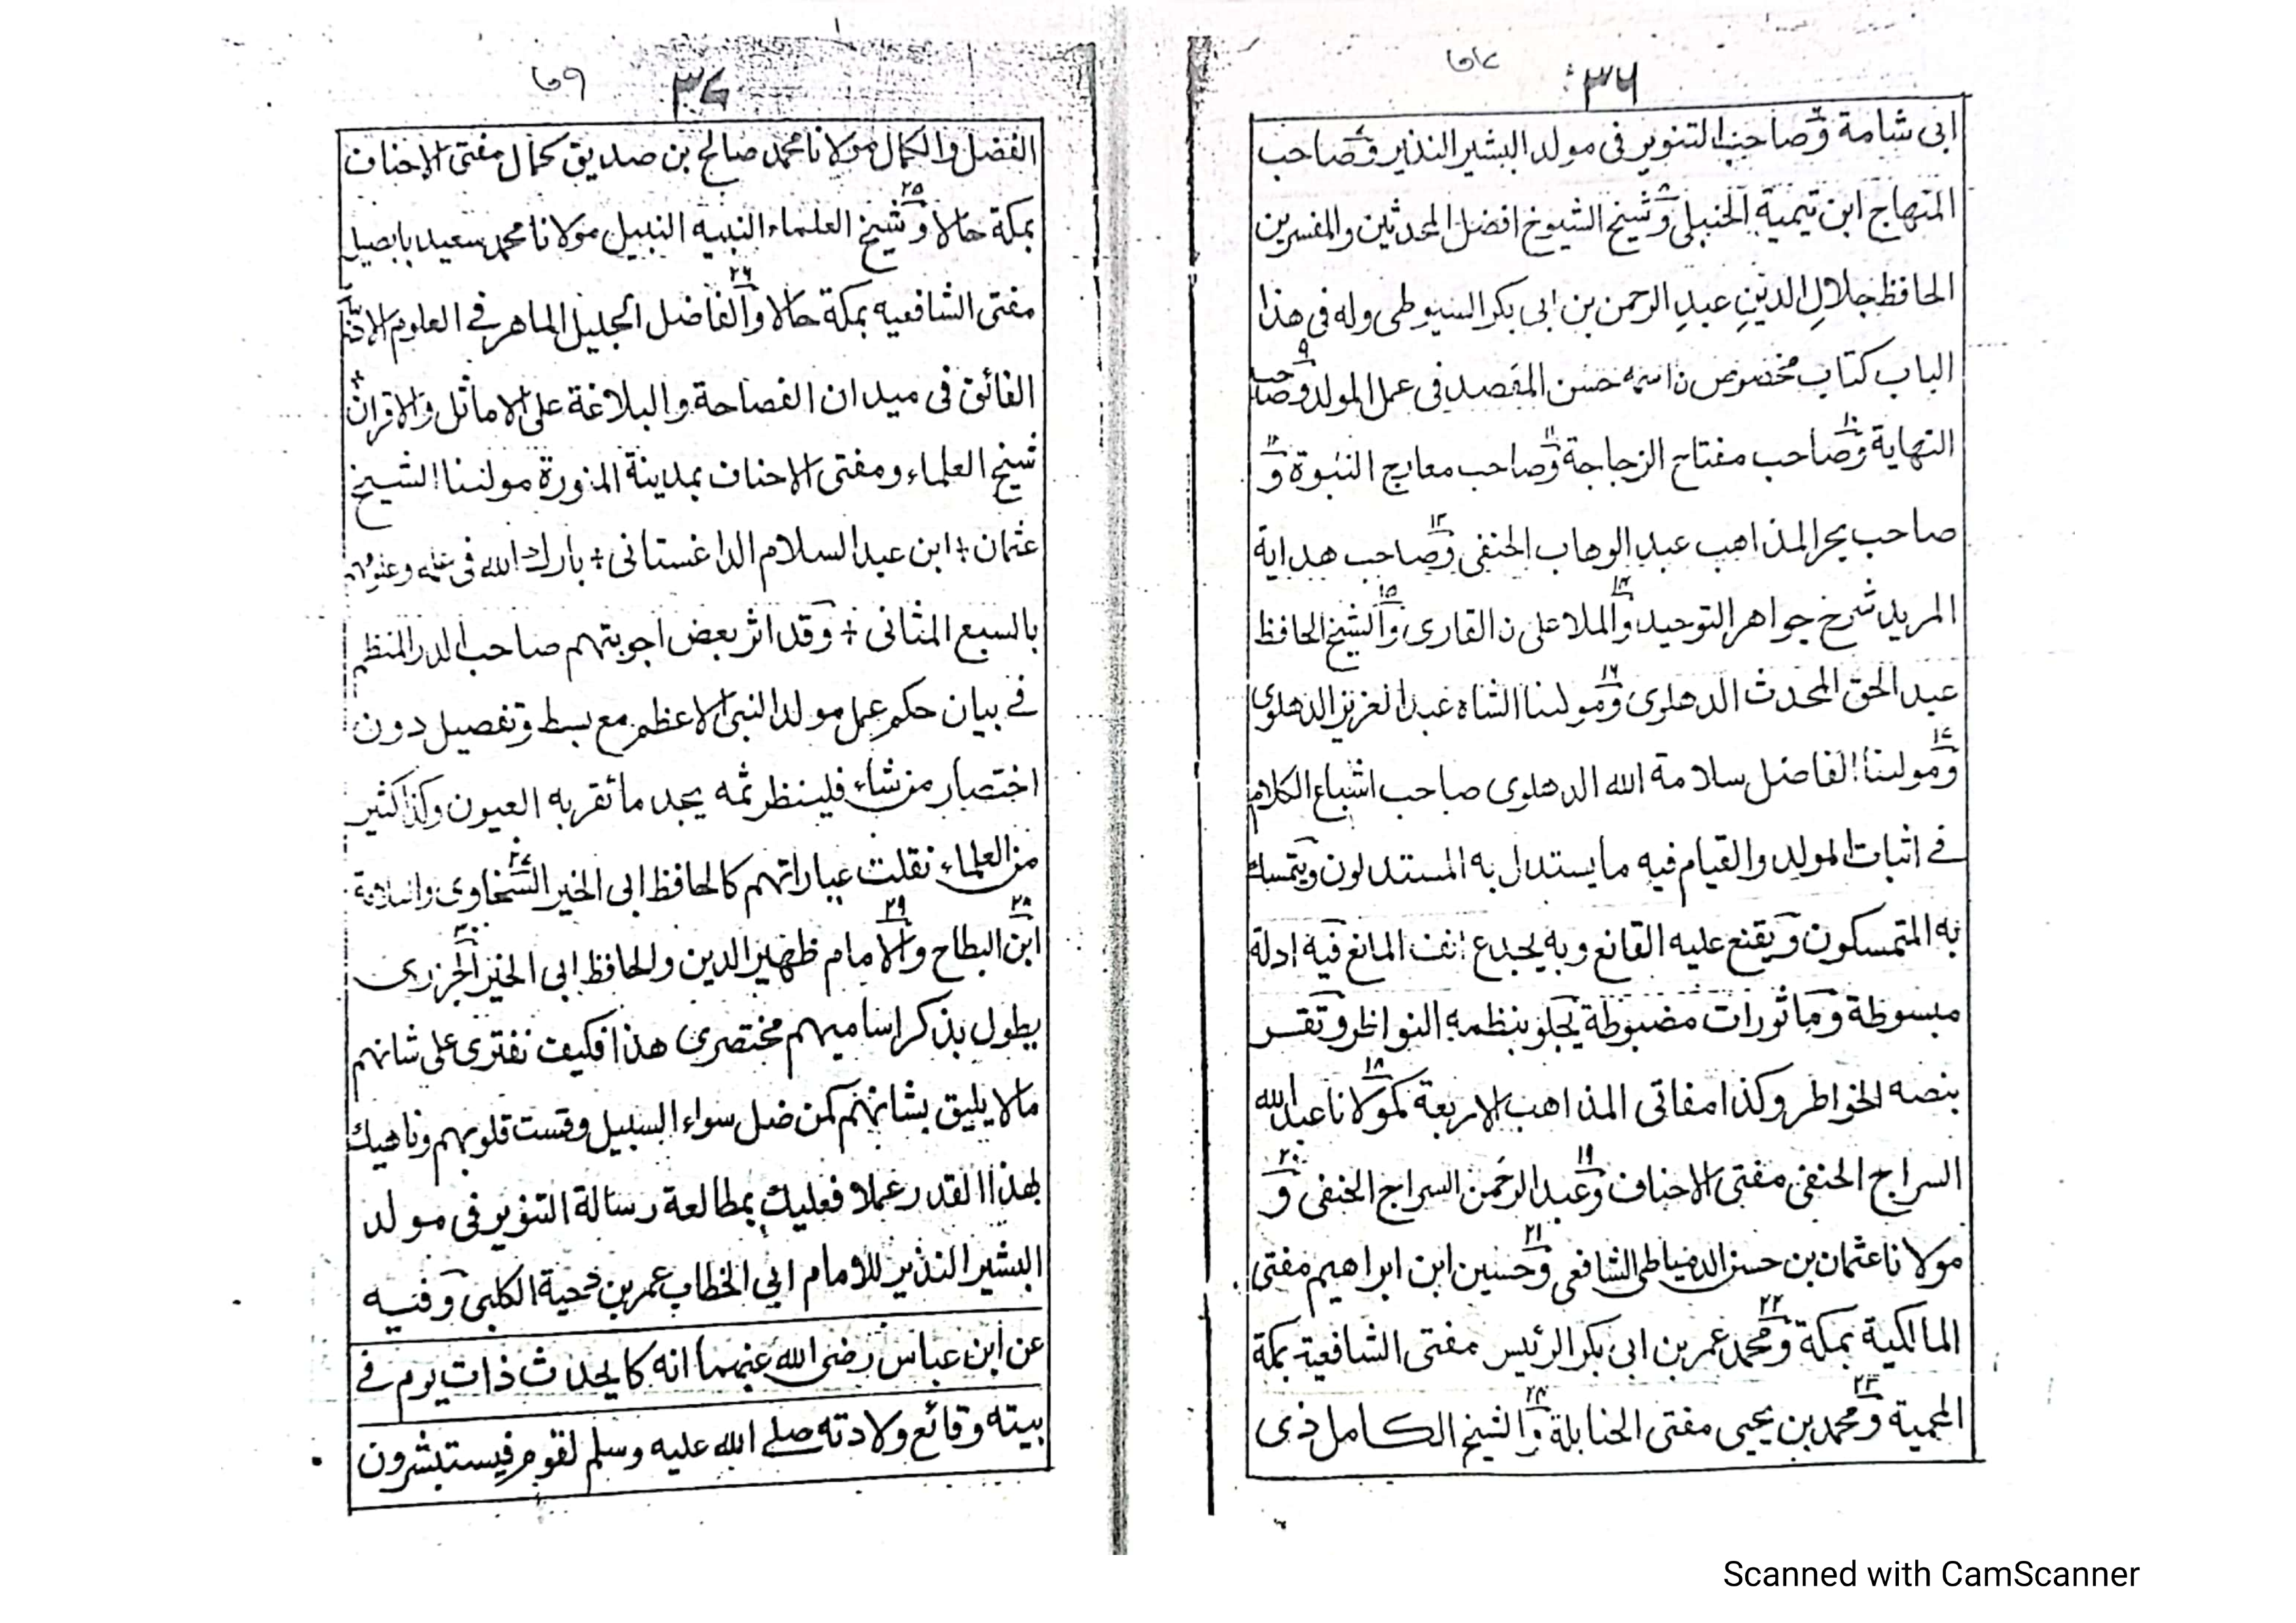 ٣٦
ابی شامة وصاحب التنویر فی مولد البشیر النذیر وصاحب
المنهاج ابن تیمیة الحنبلی وشیخ الشیوخ افضل المحدثین والمفسرین
الحافظ جلالِ الدینِ عبدِ الرحمن بن ابی بکر السیوطی وله فی هذا
الباب کتاب مخصوص ن اسمه حسن المقصد فی عمل المولد وصاحب
النهایة وصاحب مفتاح الزجاجة وصاحب معارج النبوة و
صاحب بحر المذاهب عبد الوهاب الحنفی وصاحب هدایة
المرید شرح جواهر التوحید والملا علی ن القاری والشیخ الحافظ
عبد الحق المحدث الدهلوی ومولٰنا الشاه عبد العزیز الدهلوی
ومولٰنا الفاضل سلامة الله الدهلوی صاحب اشباع الکلام
فی اثبات المولد والقیام فیه ما یستدل به المستدلون ویتمسك
به المتمسکون ویقنع علیه القانع وبه یجدع انف المانع فیه ادلة
مبسوطة وماثورات مضبوطة یجلو بنظمه النواظر وتقر
بنصه الخواطر وکذا مفاتی المذاهب الاربعة کمولانا عبد الله
السراج الحنفی مفتی الاحناف وعبد الرحمن السراج الحنفی و
مولانا عثمان بن حسن الدمیاطی الشافعی وحسین ابن ابراهیم مفتی
المالکیة بمکة ومحمد عمر بن ابی بکر الرئیس مفتی الشافعیة بمکة
المحمیة ومحمد بن یحیی مفتی الحنابلة والشیخ الکامل ذی
٣٧
الفضل والکمال مولانا محمد صالح بن صدیق کمال مفتی الاحناف
بمکة حالا وشیخ العلماء النبیه النبیل مولانا محمد سعید بابصیل
مفتی الشافعیه بمکة حالا والفاضل الجلیل الماهر فی العلوم
الفائق فی میدان الفصاحة والبلاغة علی الاماثل والاقران
شیخ العلماء ومفتی الاحناف بمدینة المنورة مولٰنا الشیخ
عثمان + ابن عبد السلام الداغستانی + بارك الله فی علمه
بالسبع المثانی + وقد اثر بعض اجوبتهم صاحب الدر المنظم
فی بیان حکم عمل مولد النبی الاعظم مع بسط وتفصیل دون
اختصار من شاء فلینظر ثمه یجد ما تقر به العیون وکذا کثیر
من العلماء نقلت عباراتهم کالحافظ ابی الخیر السخاوی
ابن البطاح والامام ظهیر الدین والحافظ ابی الخیر الجزری
یطول بذکر اسامیهم مختصری هذا فکیف نفتری علی شانهم
مالا یلیق بشانهم کمن ضل سواء السبیل وقست قلوبهم وناهیك
بهذا القدر عملا فعلیك بمطالعة رسالة التنویر فی مولد
البشیر النذیر للامام ابی الخطاب عمر بن دحیة الکلبی وفیه
عن ابن عباس رضی الله عنهما انه کا یحدث ذات یوم فی
بیته وقائع ولادته صلی الله علیه وسلم لقوم فیستبشرون
Scanned with CamScanner